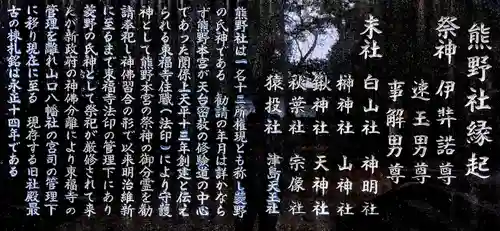 熊野社縁起
祭神 伊弉諾尊
速玉男尊
事解男尊
末社 白山社 神明社
榊神社 山神社
鍬神社 天神社
秋葉社 宗像社
猿投社 津島天王社
熊野社は一名十三所権現とも称し菱野
の氏神である 勧請の年月は詳かなら
ず熊野本宮が天台密教の修験道の中心
であった関係上天平十三年創建と伝え
られる東福寺住職(法印)により守護
神として熊野本宮の祭神の御分霊を勧
請奉祀し神佛習合の形で以来明治維新
に至るまで東福寺法印の管理下にあり
菱野の氏神として祭祀が厳修されて来
たが新政府の神佛分離により東福寺の
管理を離れ山口八幡社の宮司の管理下
に移り現在に至る 現存する旧社殿最
古の棟札銘は永正十四年である